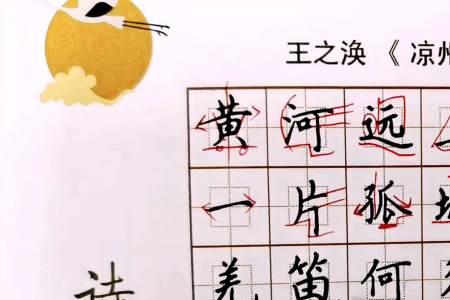 王之涣 《 凉州
黄河远
一片孤
羌笛何
诗